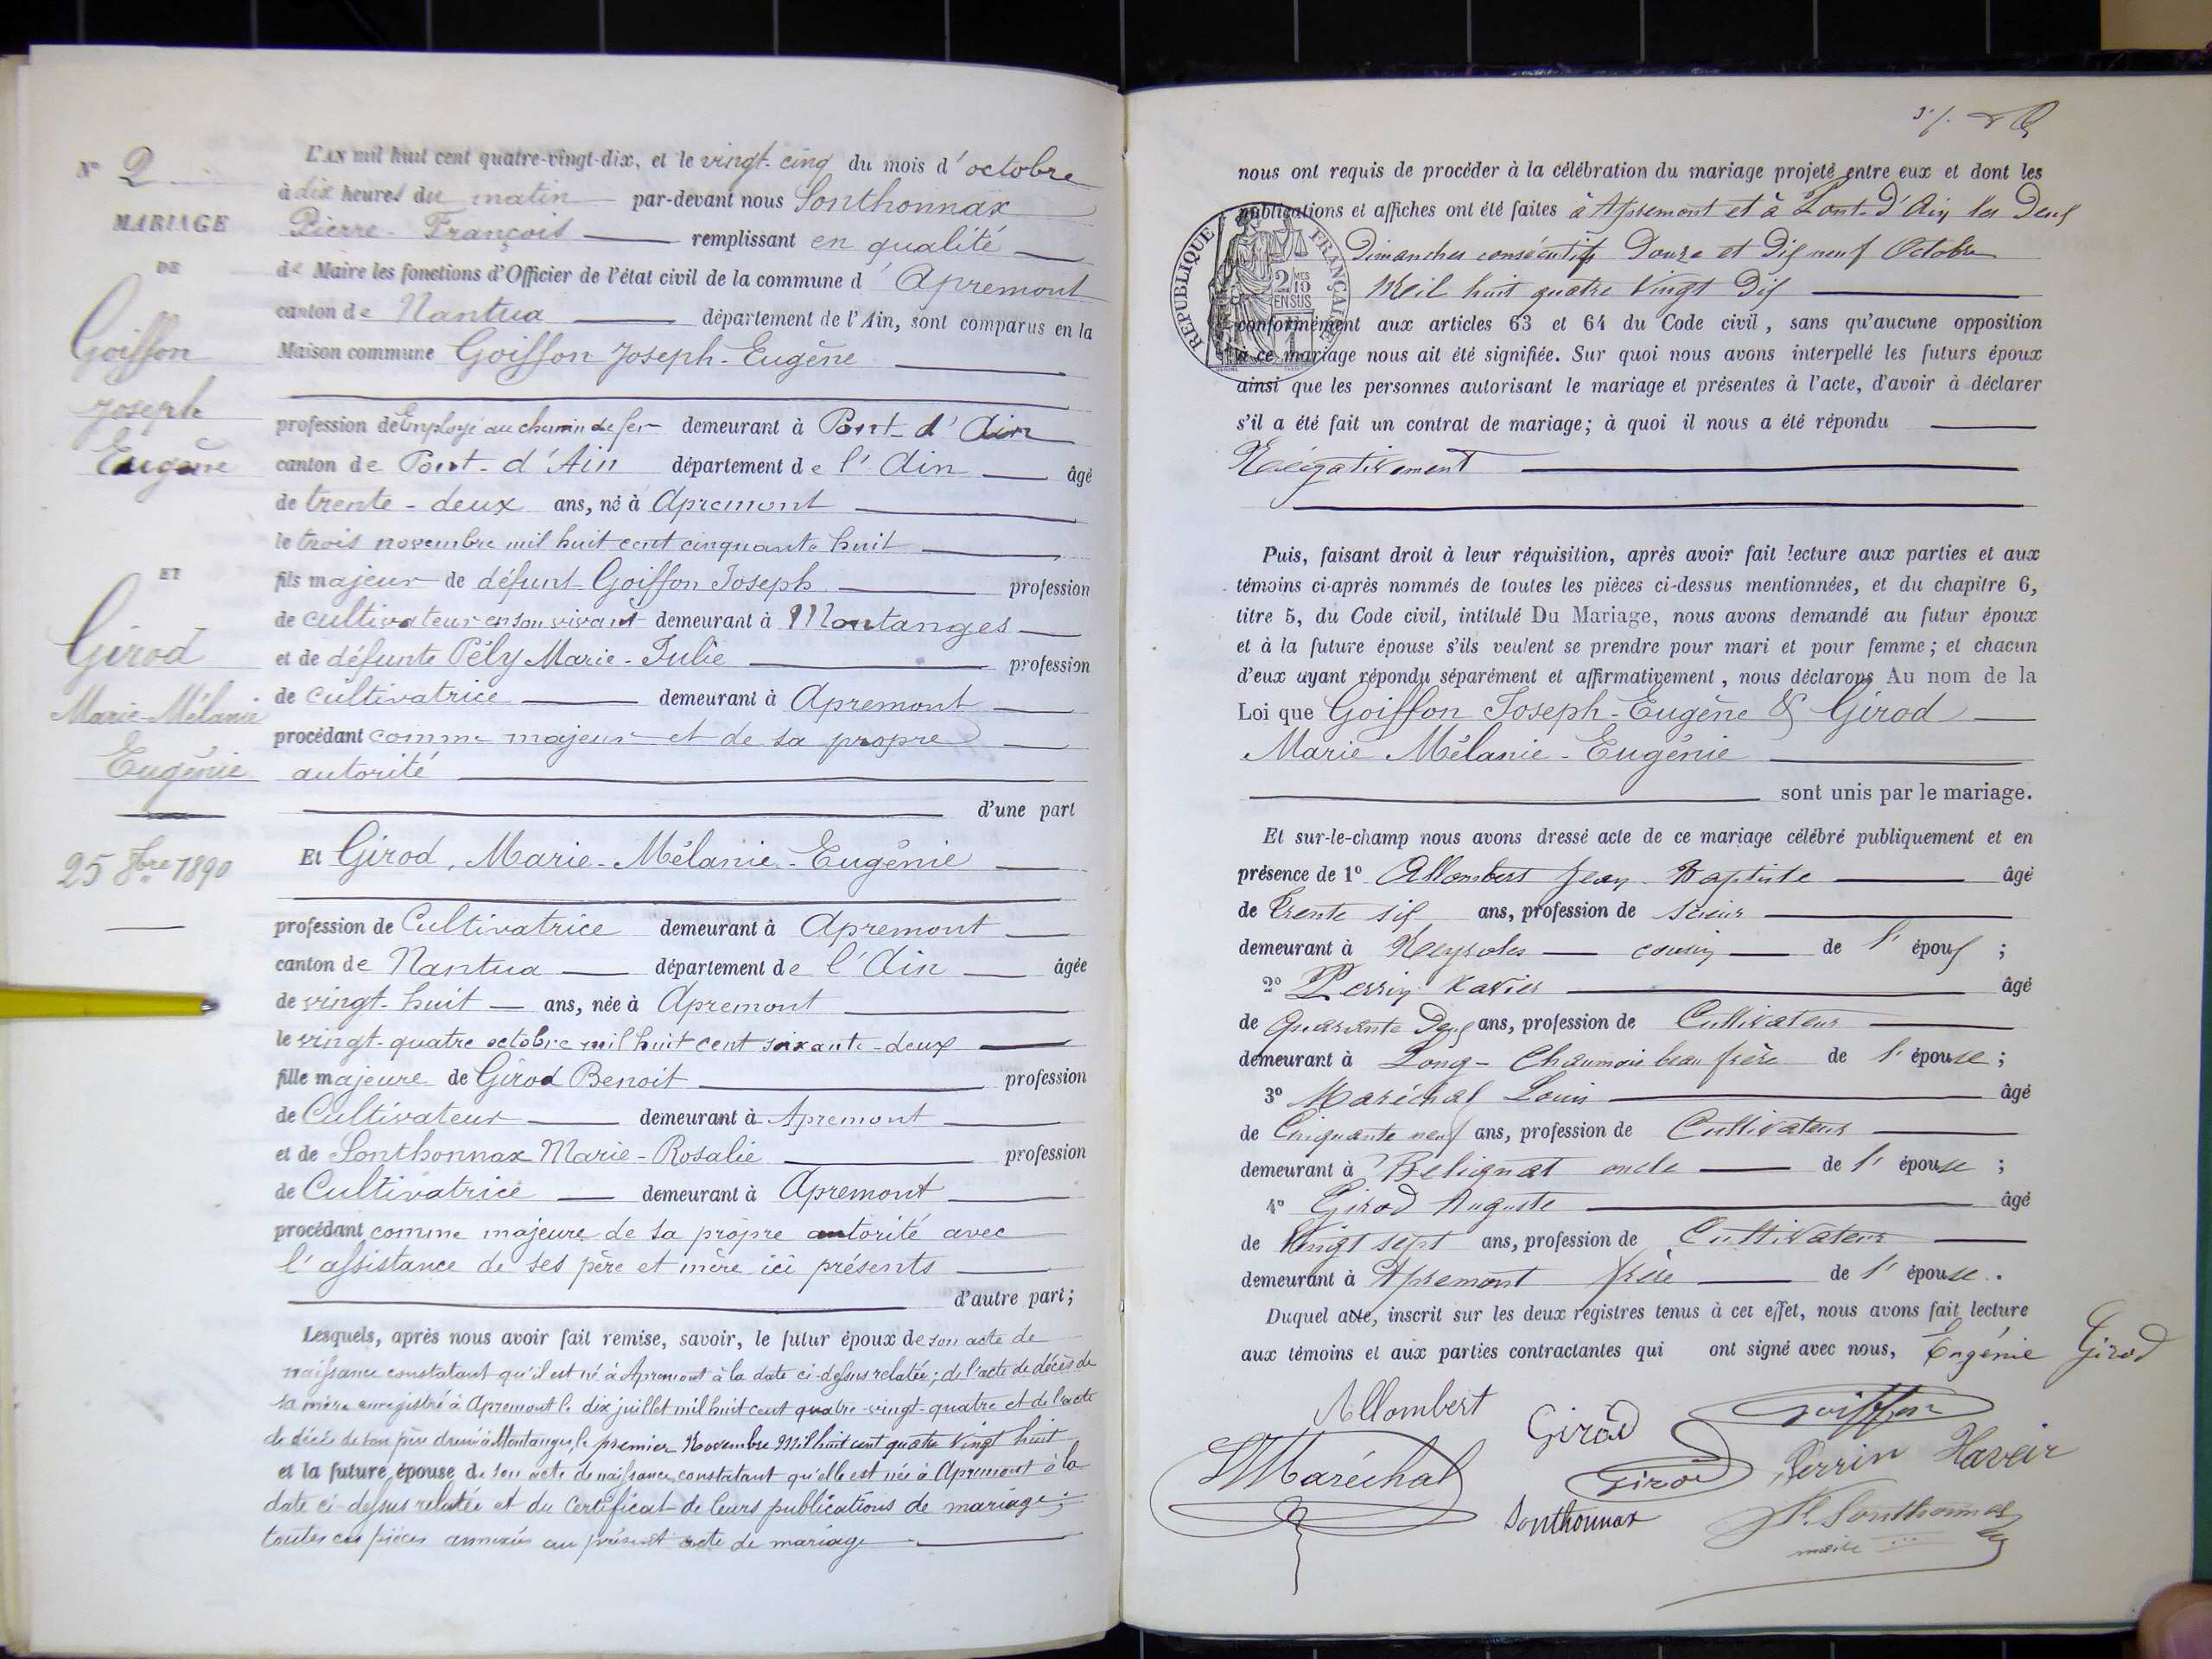 N° 2
MARIAGE
DE
Goiffon
Joseph
Eugène
ET
Girod
Marie-Mélanie
Eugénie
25 8bre 1890
L'AN mil huit cent quatre-vingt-dix, et le vingt-cinq du mois d'octobre
à dix heures du matin par-devant nous Sonthonnax
Pierre-François remplissant en qualité
de Maire les fonctions d'Officier de l'état civil de la commune d'Apremont
canton de Nantua département de l'Ain, sont comparus en la
Maison commune Goiffon Joseph-Eugène
profession de Employé au chemin de fer demeurant à Pont-d'Ain
canton de Pont-d'Ain département de l'Ain âgé
de trente-deux ans, né à Apremont
le trois novembre mil huit cent cinquante huit
fils majeur de défunt Goiffon Joseph profession
de cultivateur en son vivant demeurant à Montanges
et de défunte Pély Marie-Julie profession
de cultivatrice demeurant à Apremont
procédant comme majeur et de sa propre
autorité
d'une part
Et Girod, Marie-Mélanie-Eugénie
profession de Cultivatrice demeurant à Apremont
canton de Nantua département de l'Ain âgée
de vingt-huit ans, née à Apremont
le vingt-quatre octobre mil huit cent soixante-deux
fille majeure de Girod Benoit profession
de Cultivateur demeurant à Apremont
et de Sonthonnax Marie-Rosalie profession
de Cultivatrice demeurant à Apremont
procédant comme majeure de sa propre autorité avec
l'assistance de ses père et mère ici présents
d'autre part;
Lesquels, après nous avoir fait remise, savoir, le futur époux de son acte de
naissance constatant qu'il est né à Apremont à la date ci-dessus relatée; de l'acte de décès de
sa mère enregistré à Apremont le dix juillet mil huit cent quatre-vingt-quatre et de l'acte
de décès de son père dressé à Montanges le premier Novembre Mil huit cent quatre vingt huit
et la future épouse de son acte de naissance constatant qu'elle est née à Apremont à la
date ci-dessus relatée et du Certificat de leurs publications de mariage;
toutes ces pièces annexées au présent acte de mariage
nous ont requis de procéder à la célébration du mariage projeté entre eux et dont les
publications et affiches ont été faites à Apremont et à Pont-d'Ain les Deux
Dimanches consécutifs Douze et Dix neuf Octobre
Mil huit quatre Vingt Dix
RÉPUBLIQUE FRANÇAISE
2/10 MES
EN SUS
conformément aux articles 63 et 64 du Code civil, sans qu'aucune opposition
à ce mariage nous ait été signifiée. Sur quoi nous avons interpellé les futurs époux
ainsi que les personnes autorisant le mariage et présentes à l'acte, d'avoir à déclarer
s'il a été fait un contrat de mariage; à quoi il nous a été répondu
Négativement
Puis, faisant droit à leur réquisition, après avoir fait lecture aux parties et aux
témoins ci-après nommés de toutes les pièces ci-dessus mentionnées, et du chapitre 6,
titre 5, du Code civil, intitulé Du Mariage, nous avons demandé au futur époux
et à la future épouse s'ils veulent se prendre pour mari et pour femme; et chacun
d'eux ayant répondu séparément et affirmativement, nous déclarons Au nom de la
Loi que Goiffon Joseph-Eugène & Girod
Marie Mélanie-Eugénie
sont unis par le mariage.
Et sur-le-champ nous avons dressé acte de ce mariage célébré publiquement et en
présence de 1° Allombert Jean-Baptiste âgé
de Trente six ans, profession de scieur
demeurant à Neyrolles cousin de l'époux ;
2° Perrin Xavier âgé
de Quarante Deux ans, profession de Cultivateur
demeurant à Long-Chaumois beau frère de l'épouse ;
3° Maréchal Louis âgé
de Cinquante neuf ans, profession de Cultivateur
demeurant à Belignat oncle de l'épouse ;
4° Girod Auguste âgé
de Vingt sept ans, profession de Cultivateur
demeurant à Apremont frère de l'épouse.
Duquel acte, inscrit sur les deux registres tenus à cet effet, nous avons fait lecture
aux témoins et aux parties contractantes qui ont signé avec nous, Eugénie Girod
Allombert Girod Goiffon
Maréchal Girod Perrin Xaveir
Sonthonnax P. Sonthonnax
maire